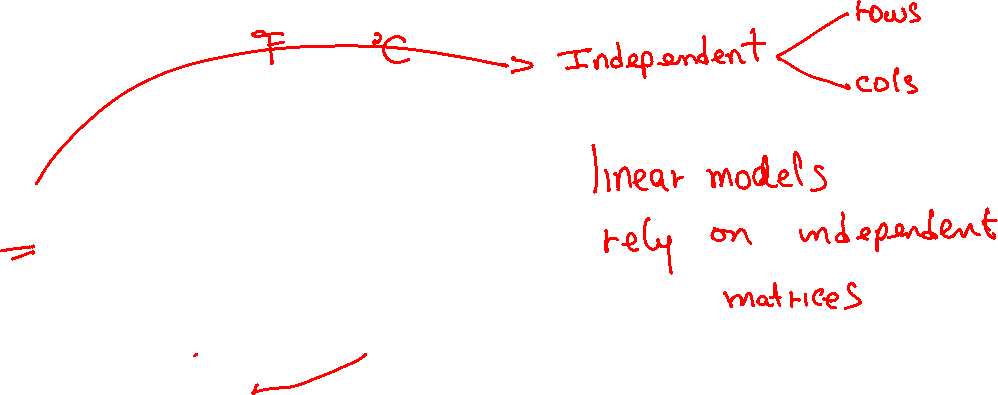 °F °C Independent
rows
cols
linear models
rely on independent
matrices